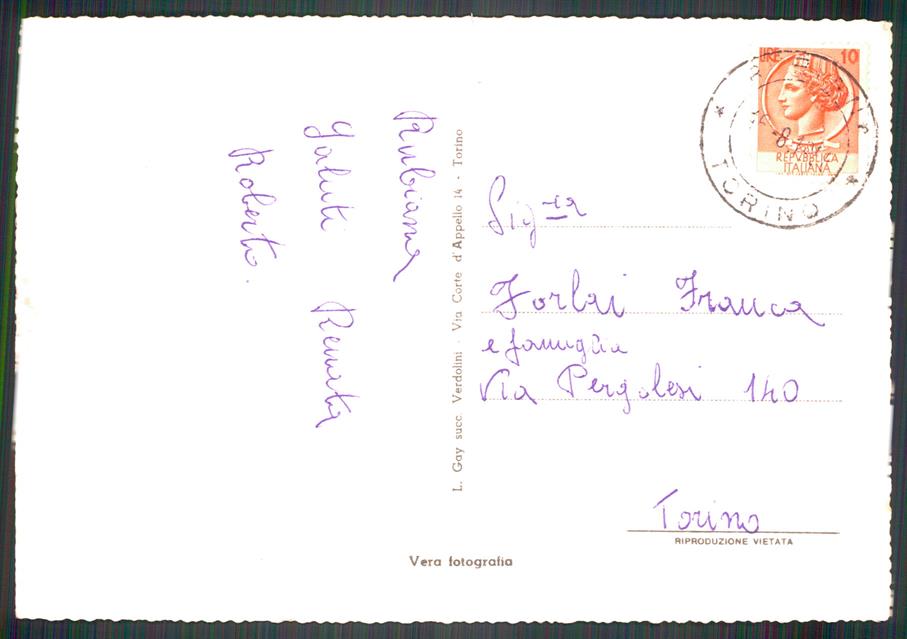 Rubiana
Saluti Renata
Roberto.
L. Gay succ. Verdolini - Via Corte d'Appello 14 - Torino
LIRE 10
REPVBBLICA
ITALIANA
TORINO
Sig.ra
Forlai Franca
e famiglia
Via Pergolesi 140
Torino
RIPRODUZIONE VIETATA
Vera fotografia